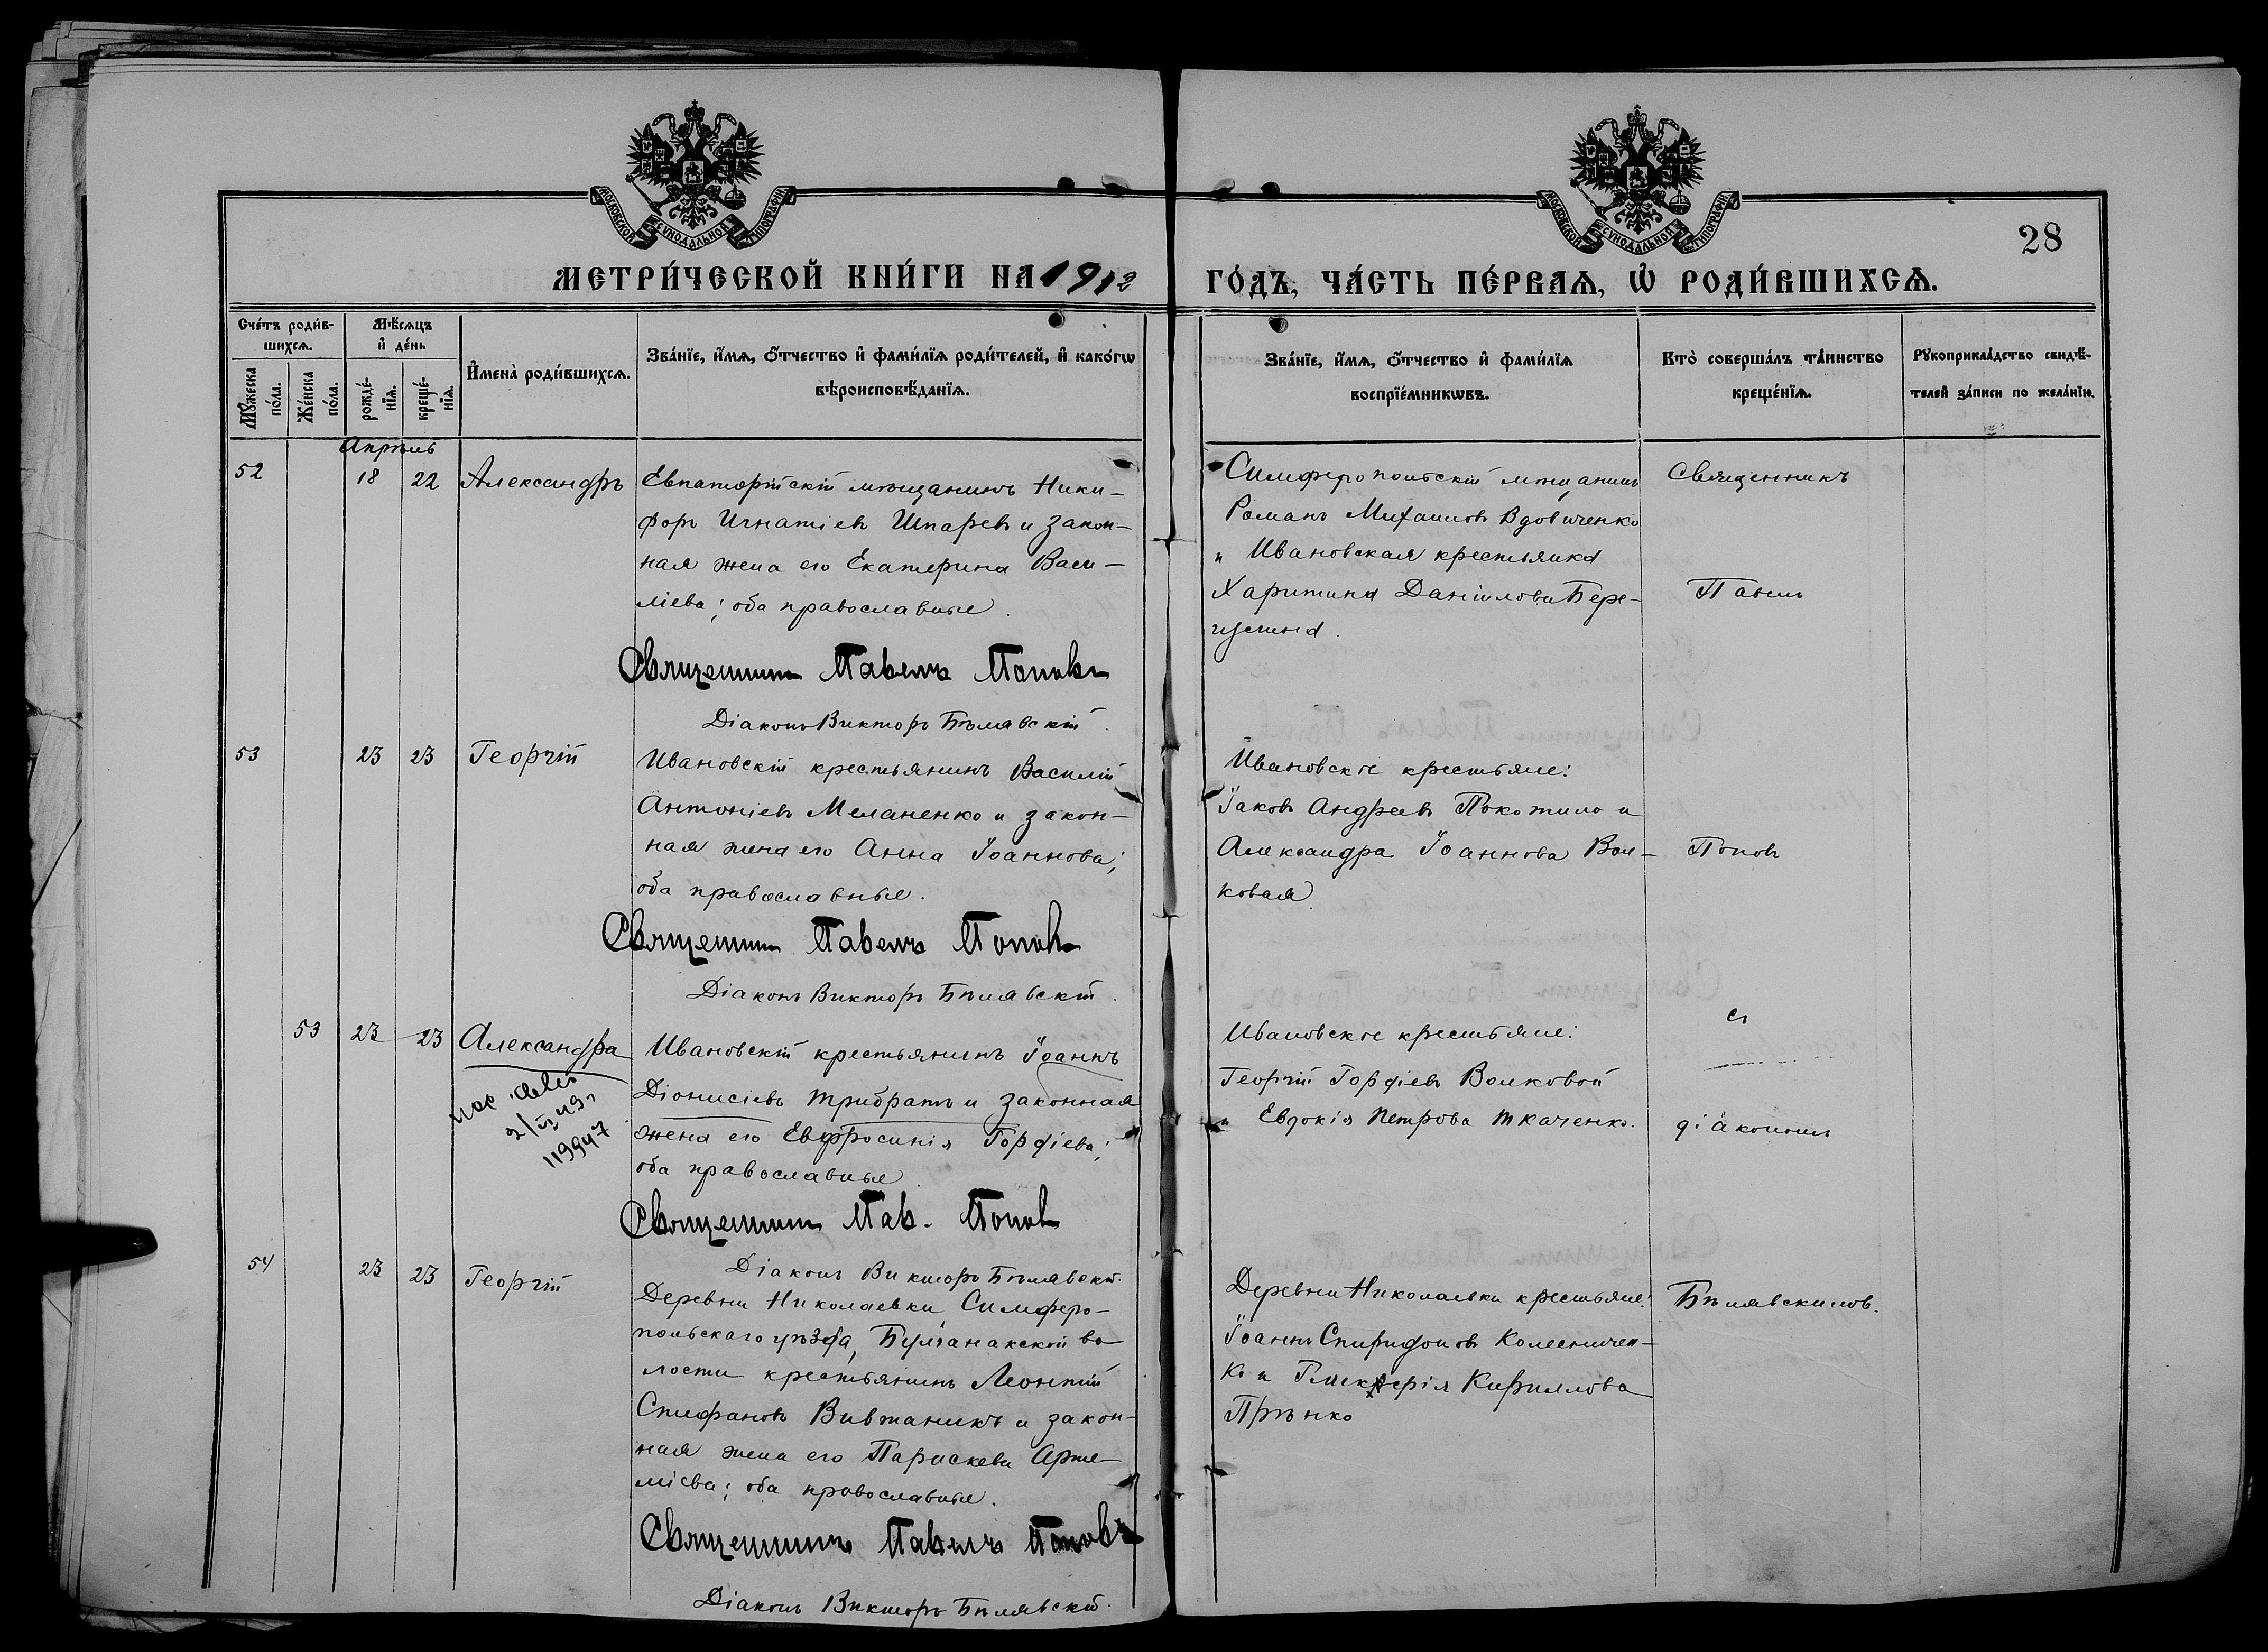 МОСКОВСКОЙ СУНОДАЛЬНОЙ ТИПОГРАФІИ
МОСКОВСКОЙ СУНОДАЛЬНОЙ ТИПОГРАФІИ
28
МЕТРИ́ЧЕСКОЙ КНИ́ГИ НА 1912
ГО́ДЪ, ЧА́СТЬ ПЕ́РВАѦ, Ѡ҆ РОДИ́ВШИХСѦ.
Сче́тъ роди́в-
шихсѧ.
Мѣ́сѧцъ
и҆ де́нь
Мꙋ́жеска по́ла.
Же́нска по́ла.
рожде́-
нїѧ.
креще́-
нїѧ.
И҆мена̀ роди́вшихсѧ.
Зва́нїе, и҆́мѧ, ѻ҆́тчество и҆ фами́лїѧ роди́телей, и҆ како́гѡ
вѣроисповѣ́данїѧ.
Зва́нїе, и҆́мѧ, ѻ҆́тчество и҆ фами́лїѧ
воспрїе́мникѡвъ.
Кто̀ соверша́лъ та́инство
креще́нїѧ.
Рꙋкоприкла́дство свидѣ́-
телей за́писи по жела́нїю.
Апрѣль
52 18 22 Александръ
Евпаторійскій мѣщанинъ Ники-
форъ Игнатіевъ Шпаревъ и закон-
ная жена его Екатерина Васи-
ліева; оба православные.
Священникъ Павелъ Поповъ
Діаконъ Викторъ Бѣлявскій.
Симферопольскій мѣщанинъ
Романъ Михаиловъ Вдовиченко
и Ивановская крестьянка
Харитина Даніилова Бере-
Священникъ
Павелъ
53 23 23 Георгій
Ивановскій крестьянинъ Василій
Антоніевъ Меланенко и закон-
ная жена его Анна Іоаннова;
оба православные.
Священникъ Павелъ Поповъ
Діаконъ Викторъ Бѣлявскій.
Ивановскіе крестьяне:
Іаковъ Андреевъ Покотило и
Александра Іоаннова Вол-
ковая
Поповъ
53 23 23 Александра
2/IV 49г
119947
Ивановскій крестьянинъ Іоаннъ
Діонисіевъ Трибратъ и законная
жена его Евфросинія Гордіева;
оба православные.
Священникъ Пав. Поповъ
Діаконъ Викторъ Бѣлявскій.
Ивановскіе крестьяне:
Георгій Гордіевъ Волковой
и Евдокія Петрова Ткаченко.
съ
діакономъ
54 23 23 Георгій
Деревни Николаевки, Симферо-
польскаго уѣзда, Булганакской во-
лости крестьянинъ Леонтій
Стефановъ Вивтаникъ и закон-
ная жена его Параскева Арте-
міева; оба православные.
Священникъ Павелъ Поповъ
Діаконъ Викторъ Бѣлявскій.
Деревни Николаевки крестьяне:
Іоаннъ Спиридоновъ Колесничен-
ко и Гликерія Кириллова
Бѣлявскимъ.